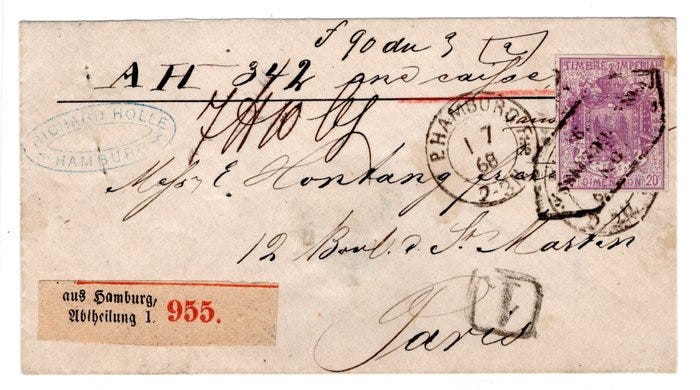 f 90 du 3
A H 342 une caisse
RICHARD HOLLE
HAMBURG
P. HAMBURG
1 7
68
2-3
TIMBRE IMPERIAL
DIMENSION 20
Mess E. Hontang frères
12 Boul. d. St. Martin
Paris
aus Hamburg,
Abtheilung 1. 955.
1